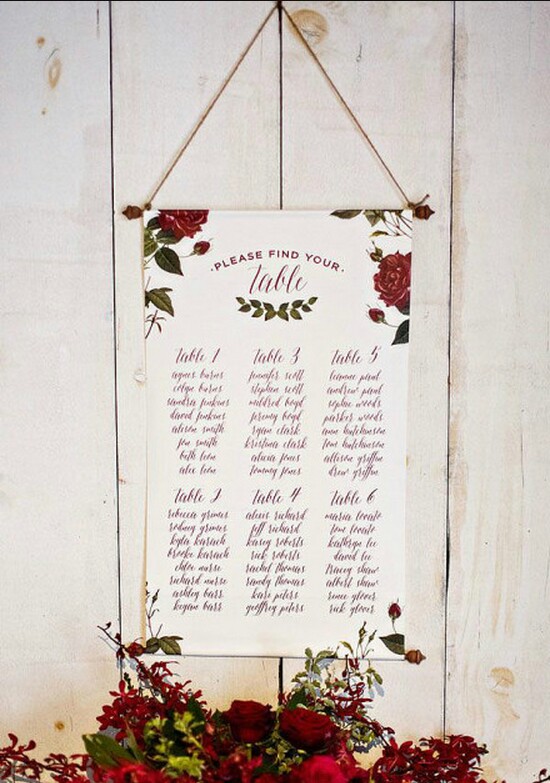 ·PLEASE FIND YOUR·
table
table 1
agnes burns
colyn burns
sandra jenkins
david jenkins
alison smith
jon smith
beth leon
alex leon
table 3
jennifer scott
stephen scott
mildred boyd
jeremy boyd
ryan clark
kristina clark
alicia jones
tommy jones
table 5
leanne paul
andrew paul
sophie woods
parker woods
ann hutchinson
tom hutchinson
allison griffin
drew griffin
table 2
rebecca grimes
rodney grimes
kyla karach
brooke karach
chloe nurse
richard nurse
ashley barr
keegan barr
table 4
alexis richard
jeff richard
kasey roberts
rick roberts
rachel thomas
randy thomas
kari peters
geoffrey peters
table 6
maria lovato
tom lovato
kathryn lee
david lee
tracey shaw
albert shaw
renee glover
rick glover